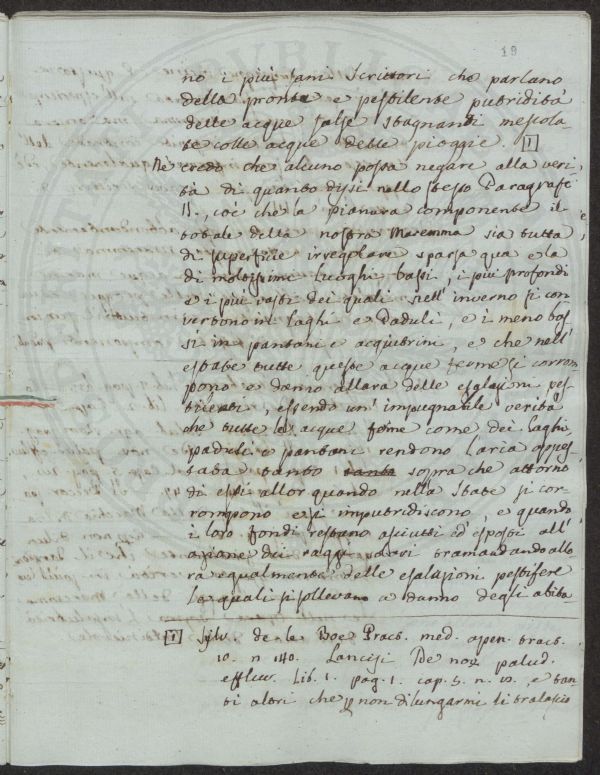 19
no i più sani Scrittori che parlano
della pronta e pestilente putridità
delle acque salse stagnandi mescola-
te colle acque delle pioggie. [1]
Ne credo che alcuno possa negare alla veri-
tà di quanto dissi nello stesso Paragrafo
II., coè che la pianura componente il
totale della nostra Maremma sia tutta
di superficie irregolare sparsa qua e la
di moltissimi luoghi bassi, i più profondi
e i più vasti dei quali nell' inverno si con-
vertono in laghi e Paduli, e i meno bas-
si in pantani e acquitrini, e che nell'
estate tutte queste acque ferme si corrom-
pono e danno allara delle esalazioni pes-
tilenti, essendo un' impugnabile verità
che tutte le acque ferme come dei laghi
paduli e pantani rendono l'aria appes-
tata tanto tanta sopra che attorno
di essi allor quando nella state si cor-
rompono e si imputridiscono, e quando
i loro fondi restano asciutti ed esposti all'
azione dei raggi solari tramandando allo-
ra egualmente delle esalazioni pestifere
le quali si sollevano a danno degli abita-
[1] Sylv. de le Boe Pract. med. apen. tract.
10. n 140. Lancisi De nox palud.
effluv. Lib. 1. pag. 1. cap. 5. n. 10. e tan-
ti altri che p non dilungarmi li tralascio